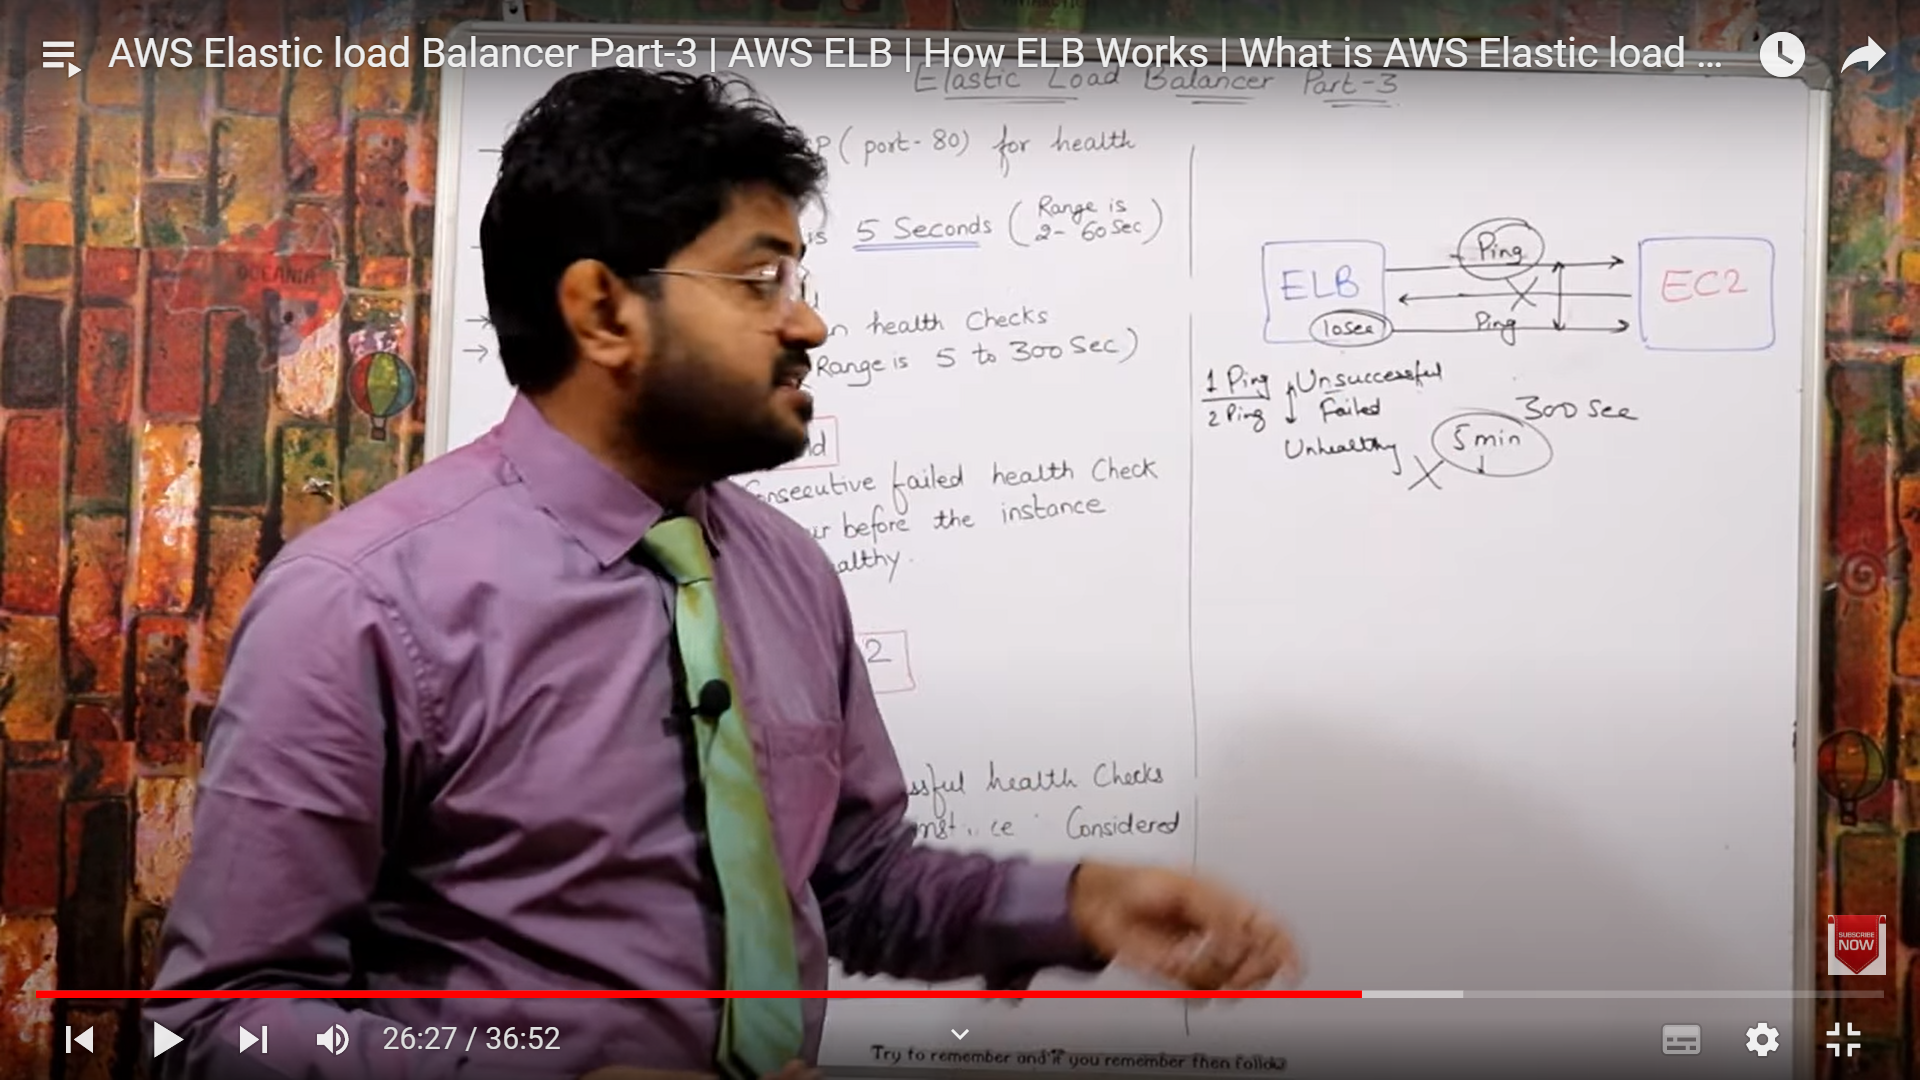 AWS Elastic load Balancer Part-3 | AWS ELB | How ELB Works | What is AWS Elastic load ...
Elastic Load Balancer Part-3
P (port-80) for health
is 5 Seconds (Range is
2- 60 Sec)
n health Checks
Range is 5 to 300 Sec)
nd
onsecutive failed health Check
ur before the instance
althy.
2
ssful health Checks
Considered
Ping
ELB
EC2
10sec
Ping
1 Ping
2 Ping
Unsuccessful
Failed
Unhealthy
300 Sec
5 min
OCEANIA
SUBSCRIBE
NOW
26:27 / 36:52
Try to remember and if you remember then follow